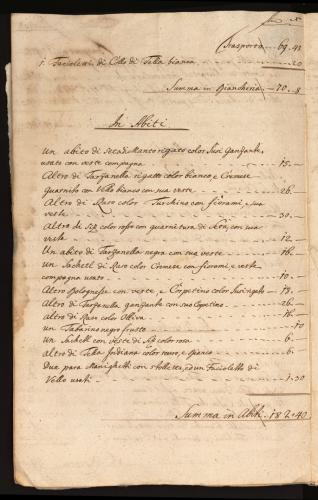 Trasporto 69.48
1. Faciolett. di Collo di Tella bianca 20
Summa in Biancheria 70.8
In Abiti
Un abito di rigato color
usato con veste compagna 15.
Altro di Tarzanella rigatto color bianco, e Cremese
Guarnito con Vello bianco con sua veste 26.
Altro di Raso color Turchino con fiorami, e sua
veste 30.
Altro di color roso con guarnitura di con sua
veste 12.
Un abito di Tarzanella negra con sua veste 16.
Un Sachetl di Raso color Cremese con fiorami, e veste
compagna usato 10.
Altro Bolognese con veste, e Corpetino color 18.
Altro di Tarzanella gangante con suo Copetino 26.
Altro di Raso color Oliva 16.
un Tabarino negro frusto 10
un Sachetl con veste di color rosa 6.
altro di Tella Indiana color scuro, e bianco 6.
due para Manighetti con ed un Facioletto di
Vello usati 1.30
Summa in Abiti 182.40